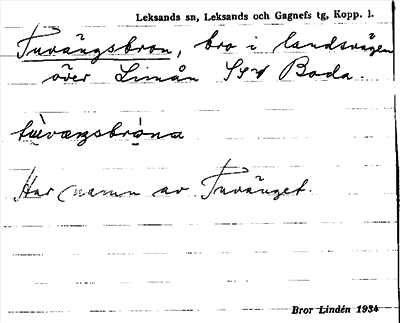 Leksands sn, Leksands och Gagnefs tg, Kopp. l.
Tuvängsbron, bro i landsvägen
över Limån SSV Boda.
Har namn av Tuvänget.
Bror Lindén 1934